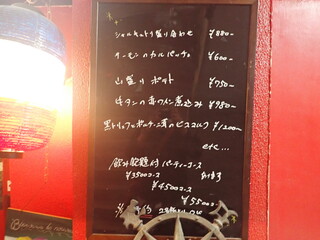 シャルキュトリ盛り合わせ ¥880-
サーモンのカルパッチョ ¥600-
山盛りポット ¥750-
牛タンの赤ワイン煮込み ¥980-
黒トリュフとポルチーニ茸のビスマルク ¥1200-
etc...
飲み放題付パーティーコース
¥3500コース
¥4500コース
¥5500コース